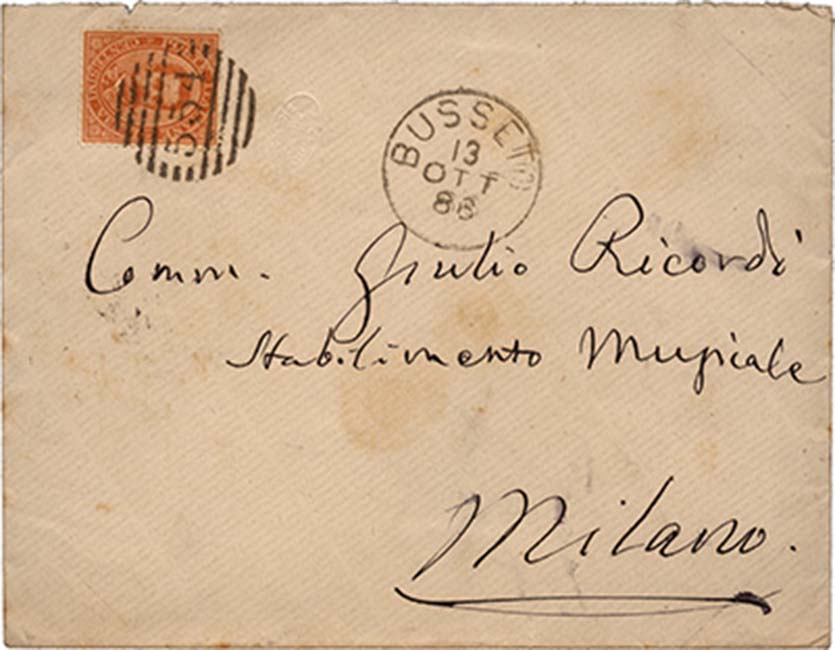 554
BUSSETO
13
OTT
86
Comm. Giulio Ricordi
Stabilimento Musicale
Milano.